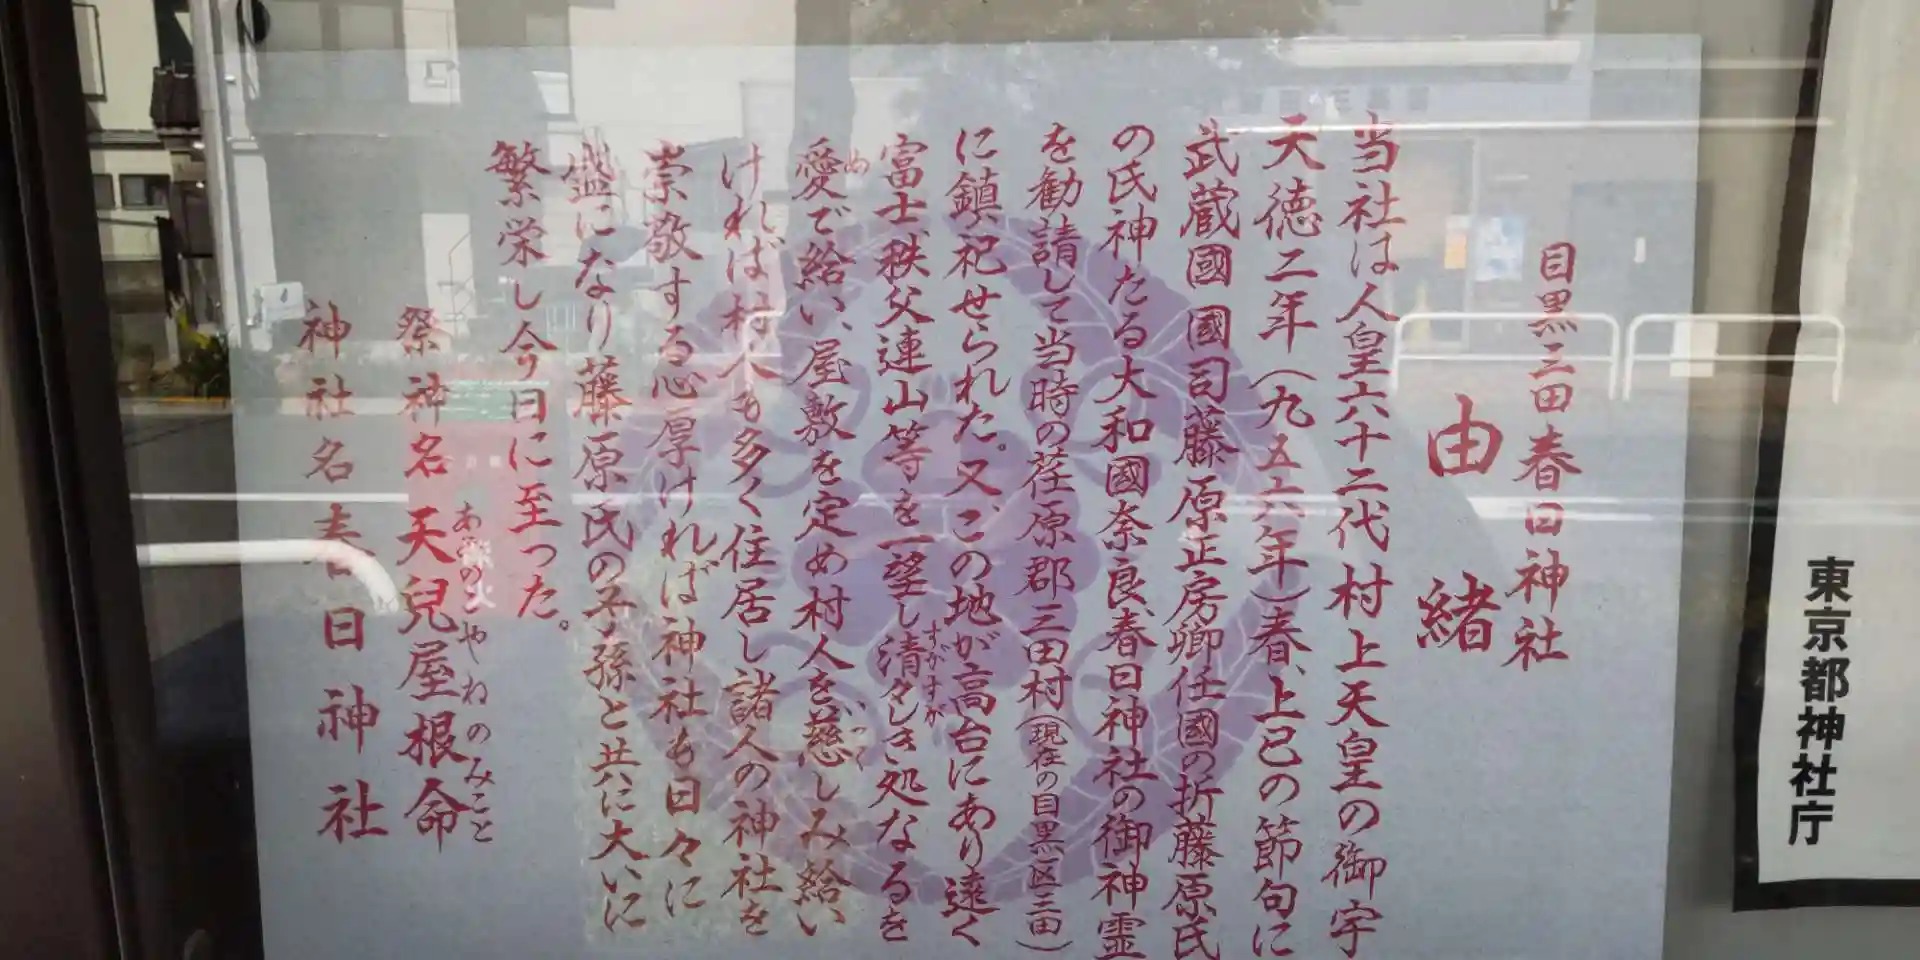 目黒三田春日神社
由緒
当社は人皇六十二代村上天皇の御宇
天徳二年(九五六年)春、上巳の節句に
武蔵國國司藤原正房卿任國の折藤原氏
の氏神たる大和國奈良春日神社の御神霊
を勧請して当時の荏原郡三田村(現在の目黒区三田)
に鎮祀せられた。又、この地が高台にあり遠く
富士、秩父連山等を一望し清々しき処なるを
すがすが
愛で給い、屋敷を定め村人を慈しみ給い
め
いつく
ければ村人も多く住居し諸人の神社を
崇敬する心厚ければ神社も日々に
盛になり藤原氏の子孫と共に大いに
繁栄し今日に至った。
祭神名 天兒屋根命
あめのこやねのみこと
神社名 春日神社
東京都神社庁